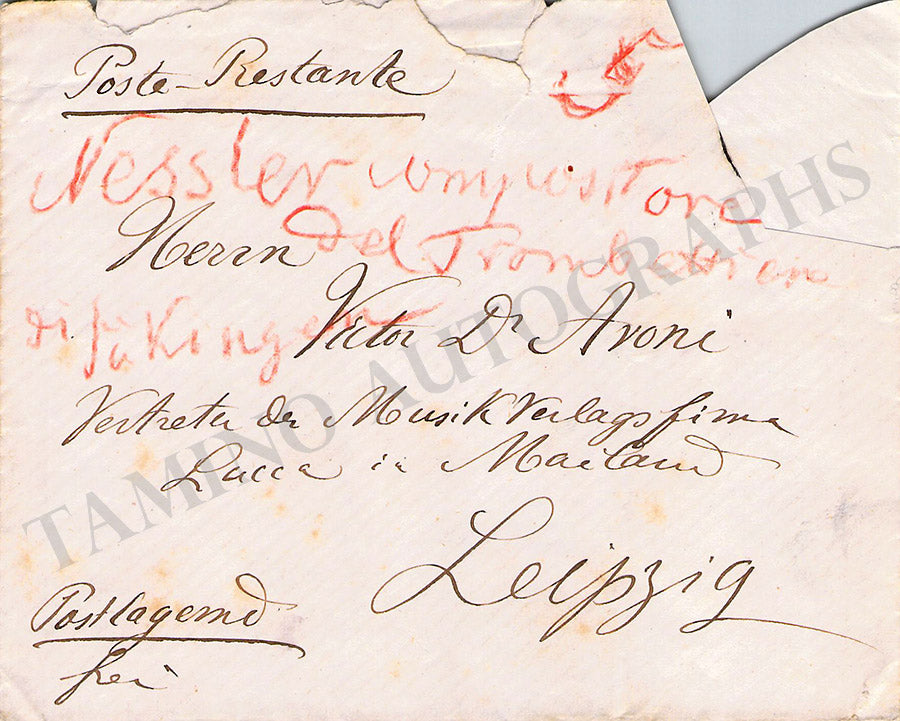 Poste-Restante
Nessler compositore
del Trombettiere
di Säkingen
Herrn
Victor Dr Aroni
Vertreter der Musik Verlagsfirma
Lucca in Mailand
Leipzig
Postlagernd
frei
TAMINO AUTOGRAPHS